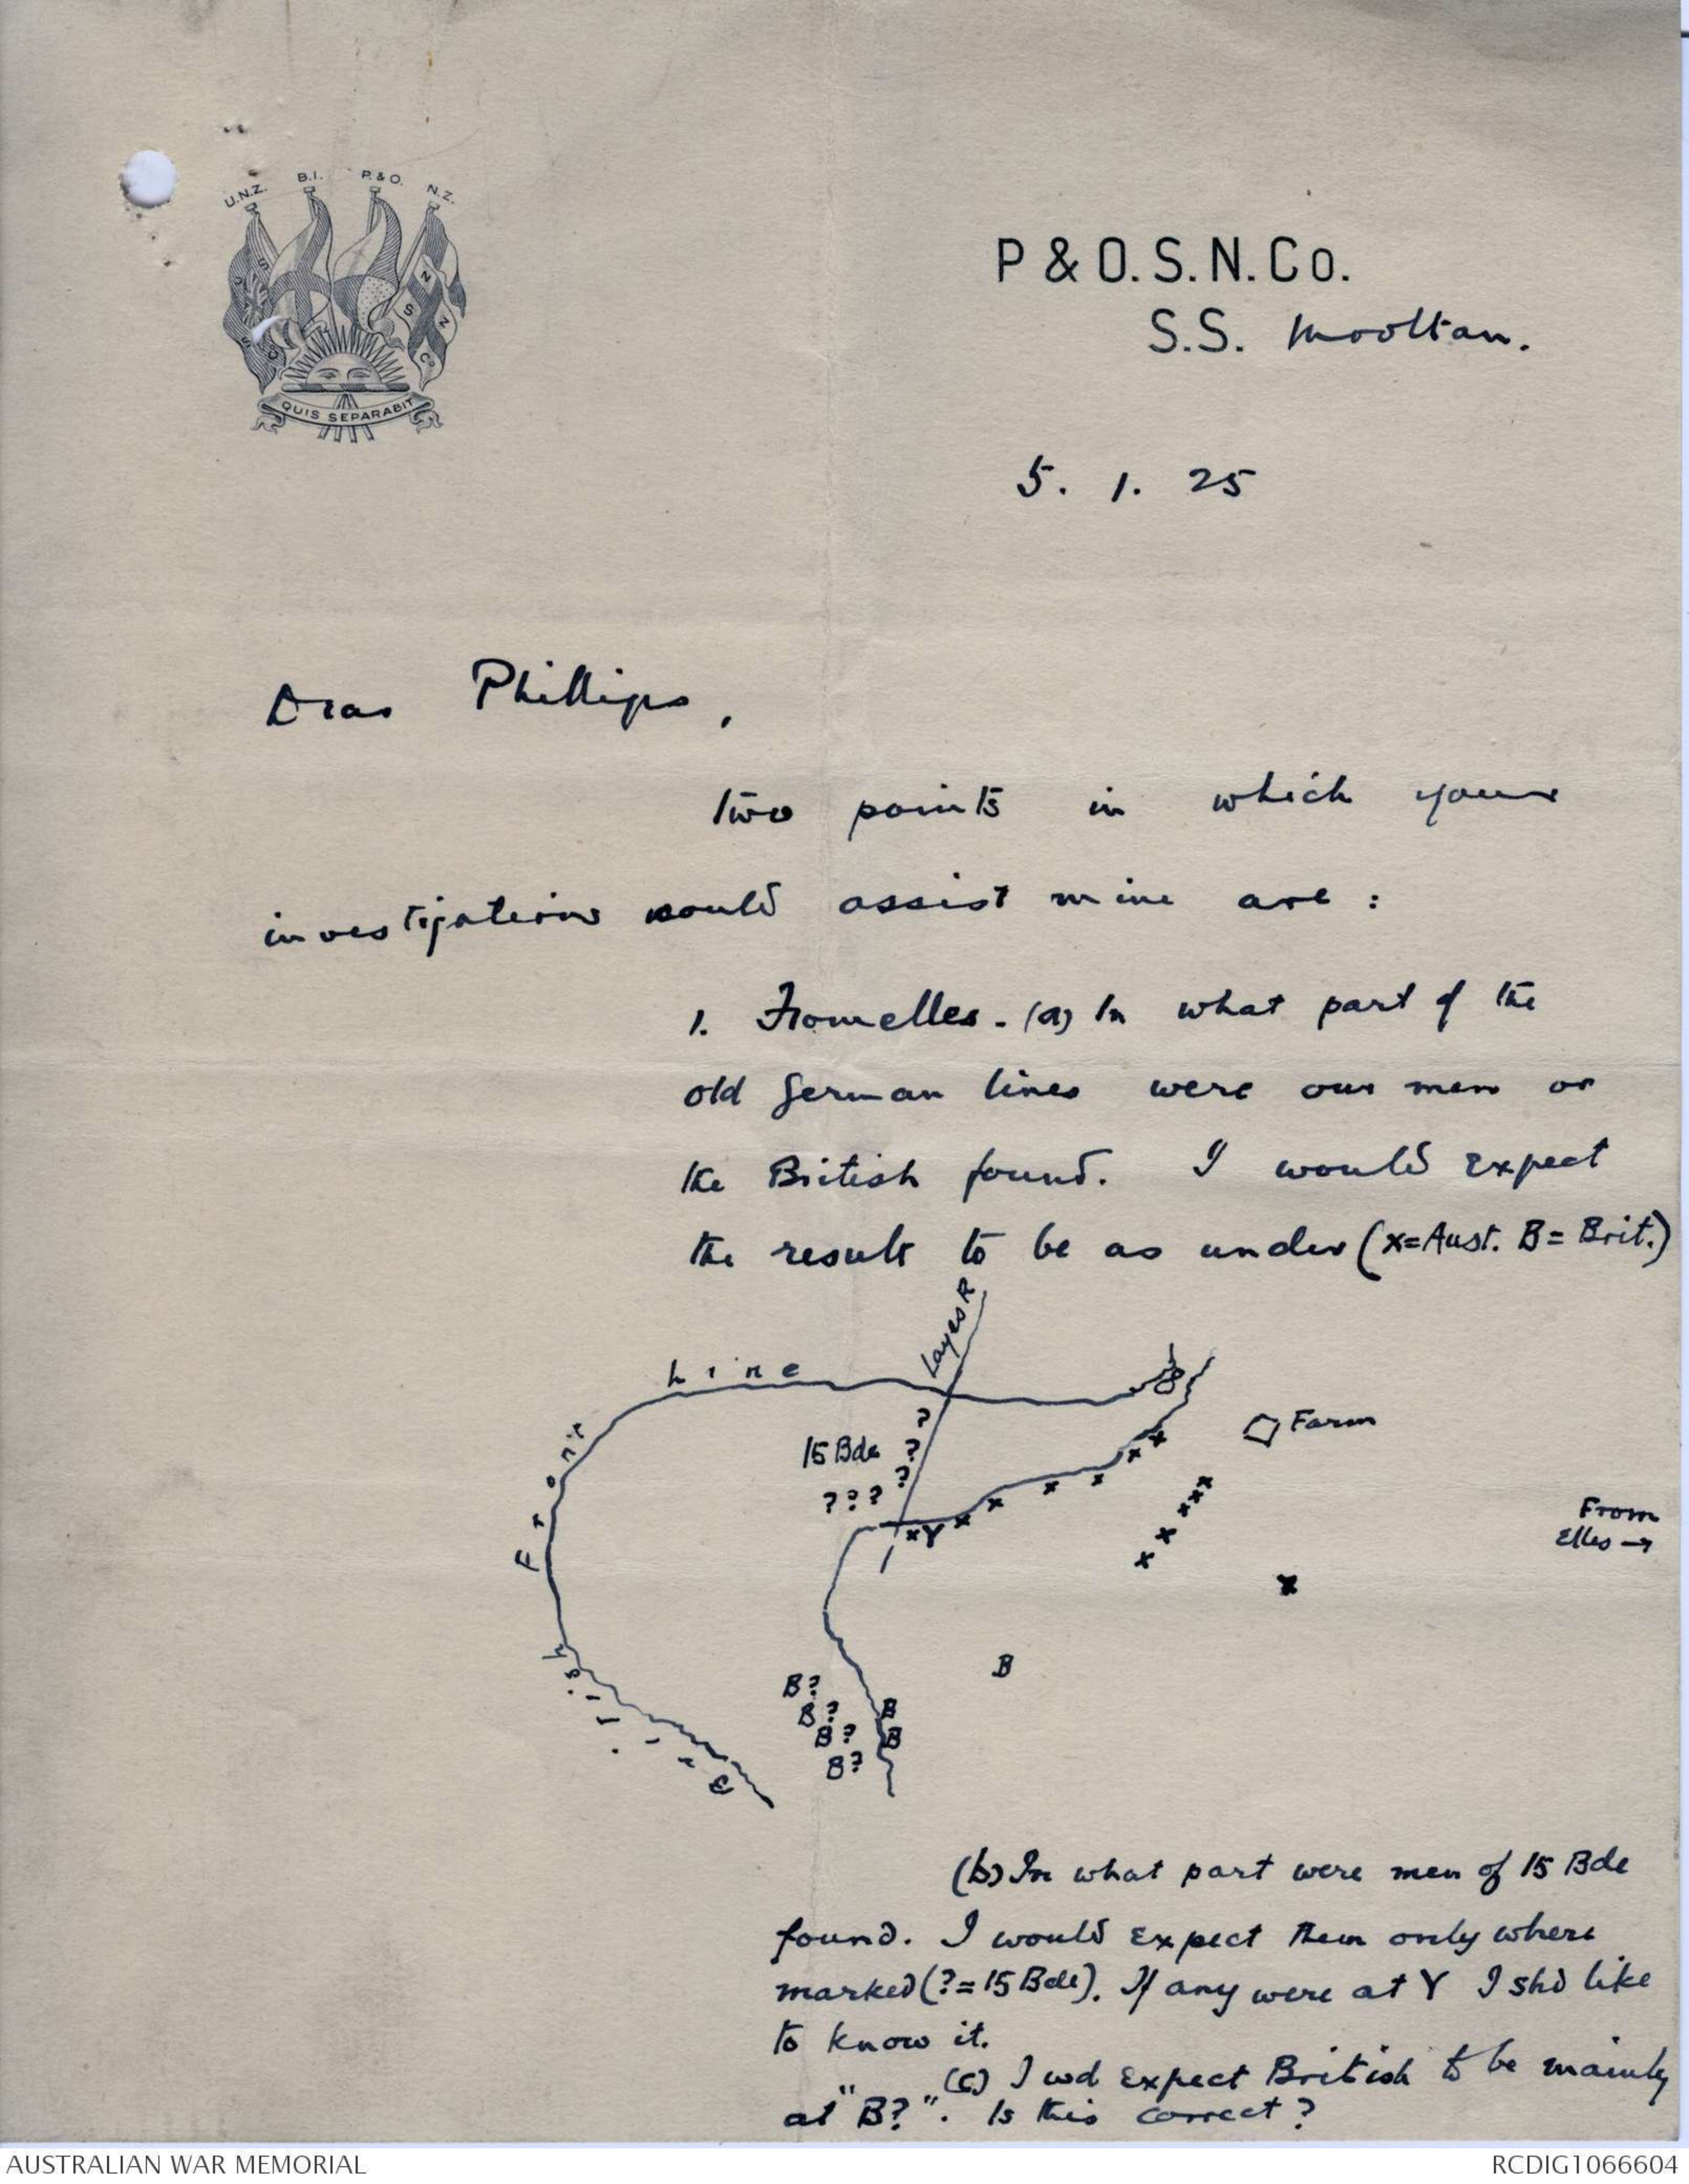 U.N.Z. B.I. P.&O. N.Z.
QUIS SEPARABIT
P & O. S. N. Co.
S.S. Mooltan.
5. 1. 25
Dear Phillips,
Two points in which your
investigations would assist mine are :
1. Fromelles. (a) In what part of the
old German lines were our men or
the British found. I would expect
the result to be as under (x=Aust. B= Brit.)
Layes R
British Front Line
Farm
15 Bde ? ? ?
? ? ?
x Y x x x x x x
x x x
x
x
x
From
Elles →
B
B?
B?
B?
B?
B
B
(b) In what part were men of 15 Bde
found. I would expect them only where
marked (?=15 Bde). If any were at Y I shd like
to know it.
(c) I wd expect British to be mainly
at "B?". Is this correct?
AUSTRALIAN WAR MEMORIAL
RCDIG1066604